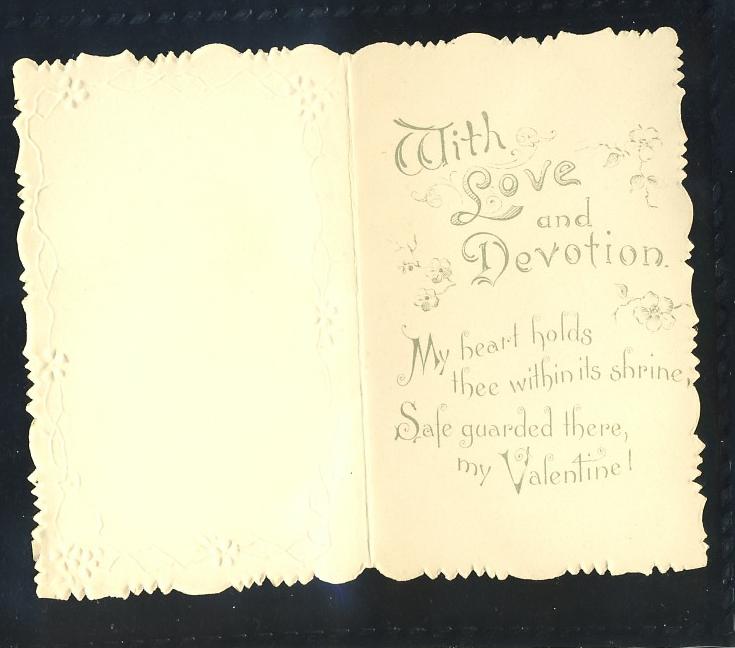 With
Love
and
Devotion.
My heart holds
thee within its shrine,
Safe guarded there,
my Valentine!